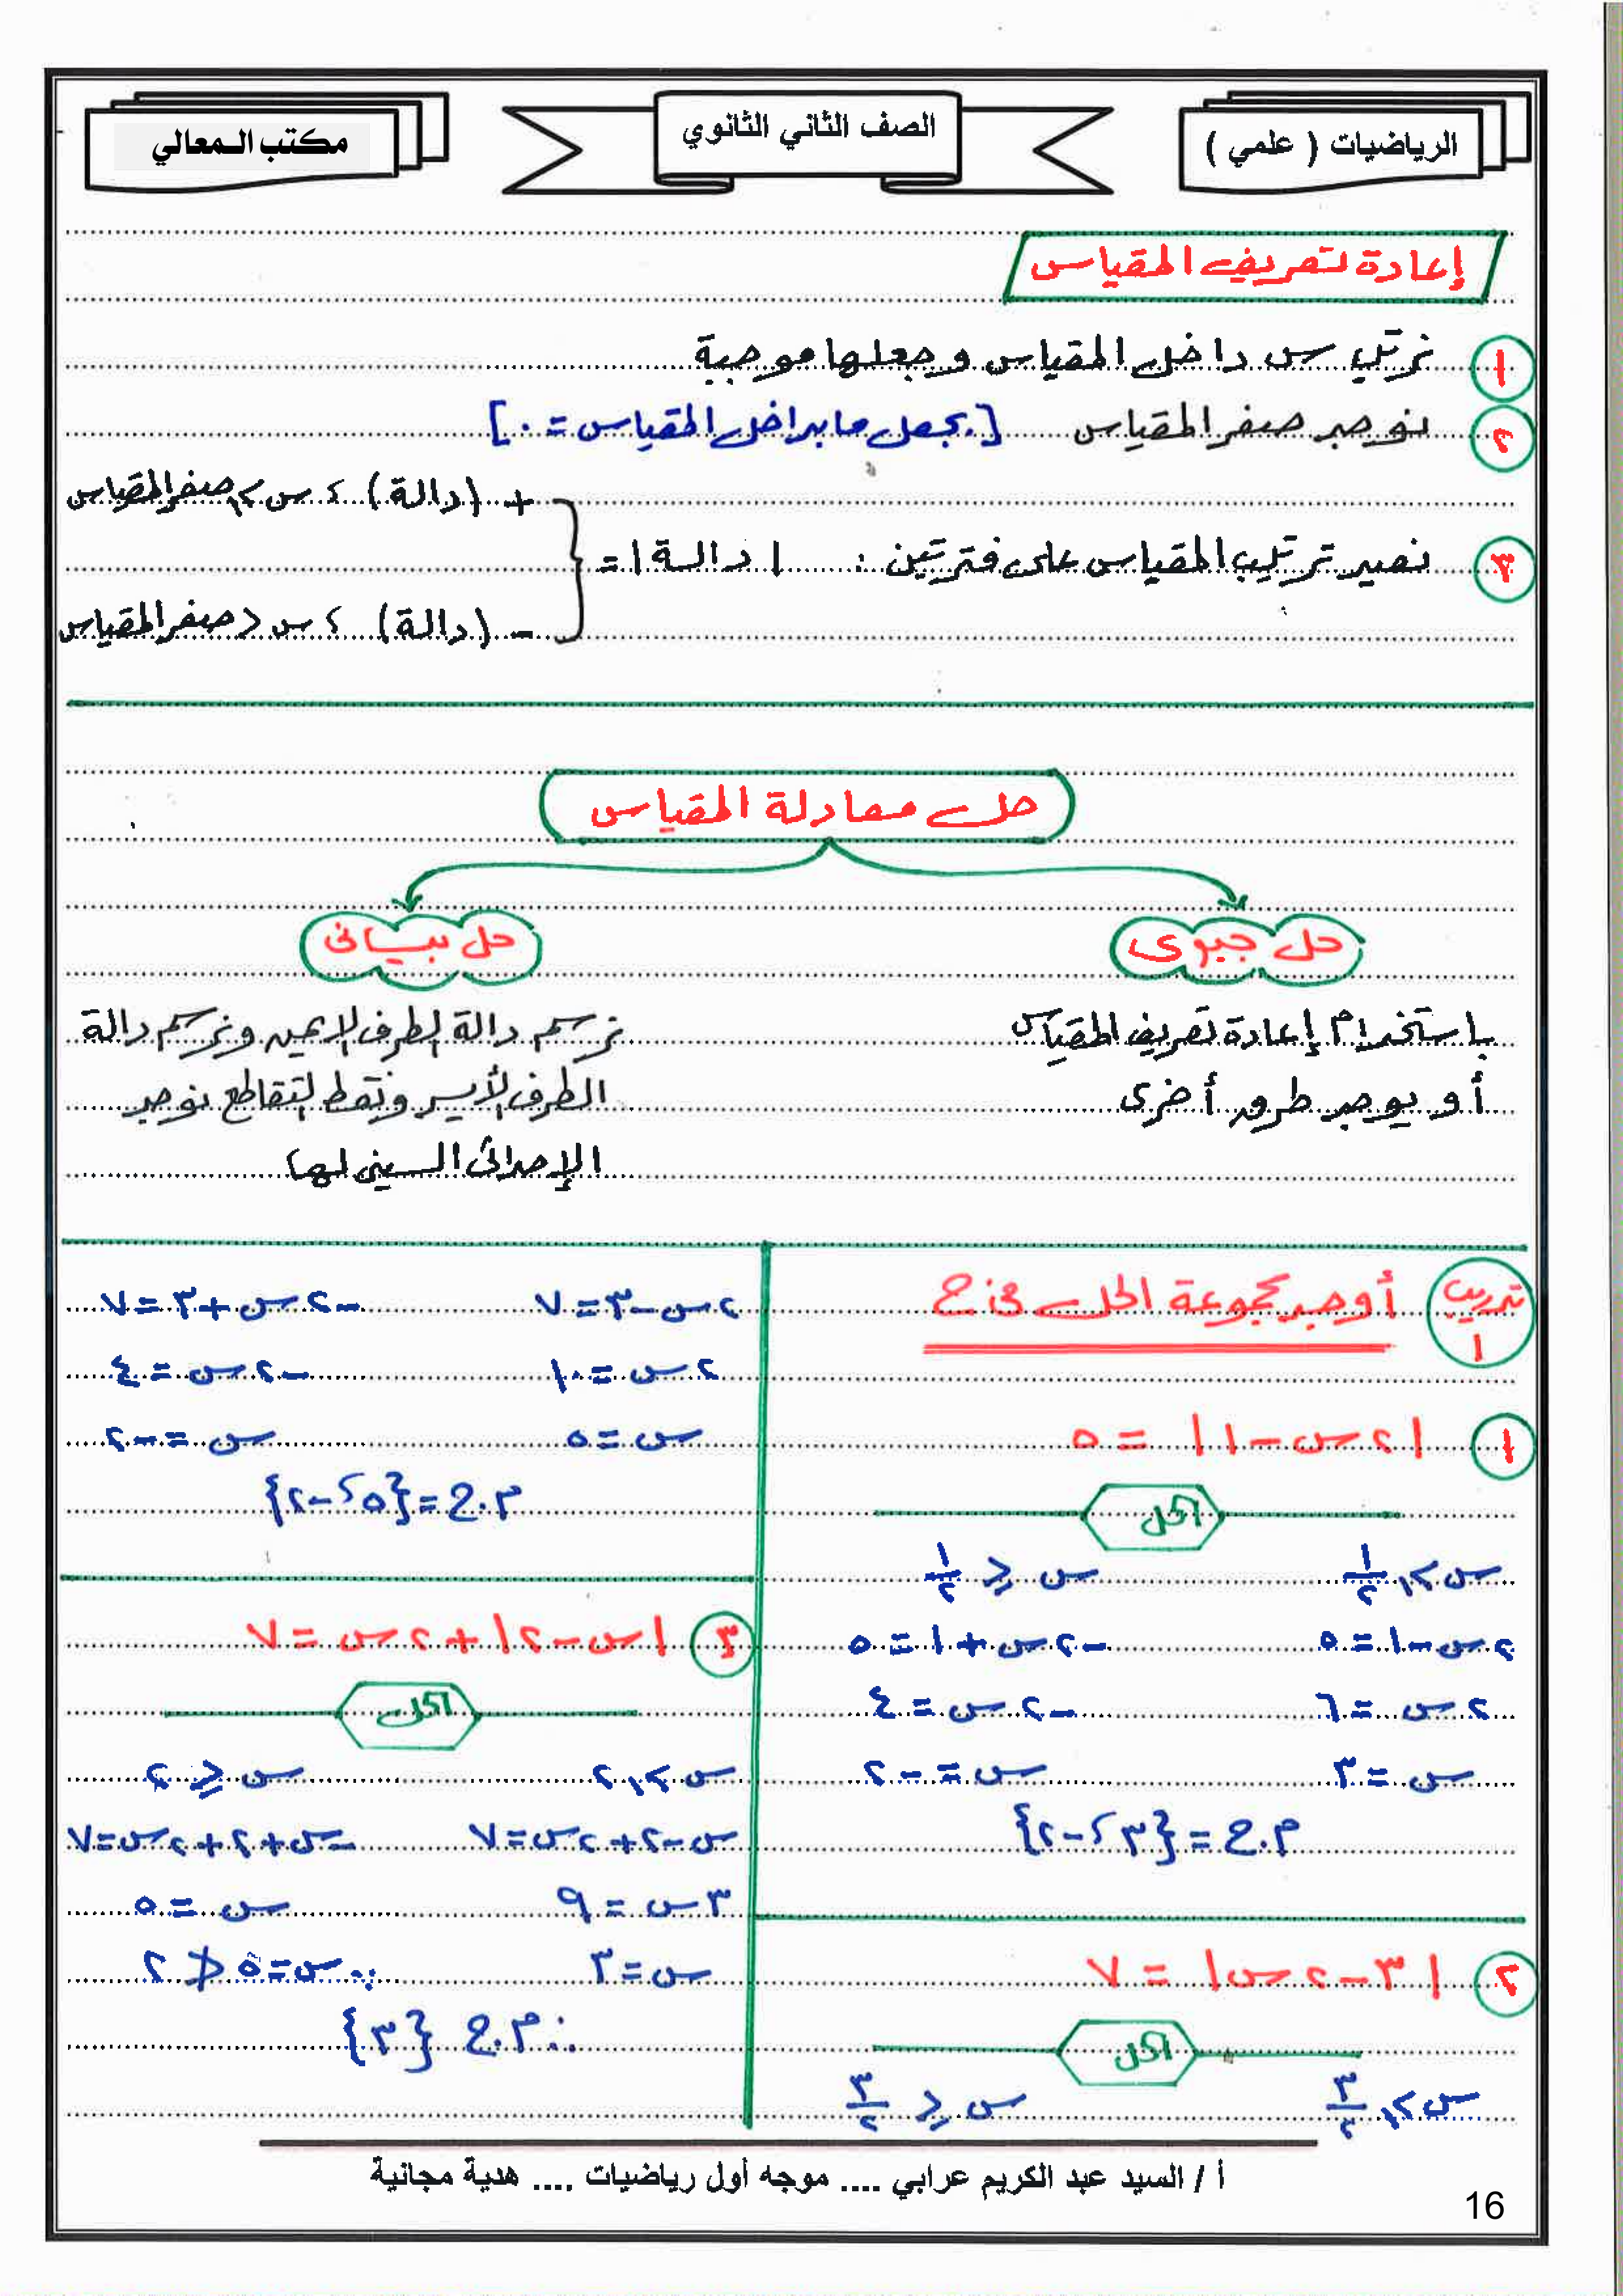 الرياضيات ( علمي )
الصف الثاني الثانوي
مكتب المعالي
إعادة تعريف المقياس
١ نرتب س داخل المقياس وجعلها موجبة
٢ نوجد صفر المقياس [بجعل ما بداخل المقياس = ٠]
+ (دالة) ، س ≥ صفر المقياس
٣ نصير ترتيب المقياس على فترتين : | دالة | =
- (دالة) ، س < صفر المقياس
حل معادلة المقياس
حل جبرى
باستخدام إعادة تعريف المقياس
أو يوجد طرق أخرى
حل بيانى
نرسم دالة الطرف الايمن ونرسم دالة
الطرف الأيسر ونقط التقاطع نوجد
الإحداثى السينى لها
تدريب ١ أوجد مجموعة الحل فى ح
١ | ٢س - ١ | = ٥
الحل
س ≥ ١/٢ س ≤ ١/٢
٢س - ١ = ٥ -٢س + ١ = ٥
٢س = ٦ -٢س = ٤
س = ٣ س = -٢
م.ح = {٣ ، -٢}
٢ | ٣ - ٢س | = ٧
الحل
س ≥ ٣/٢ س ≤ ٣/٢
٢س - ٣ = ٧ -٢س + ٣ = ٧
٢س = ١٠ -٢س = ٤
س = ٥ س = -٢
م.ح = {٥ ، -٢}
٣ |س - ٢| + ٢س = ٧
الحل
س ≥ ٢ س ≤ ٢
س - ٢ + ٢س = ٧ -س + ٢ + ٢س = ٧
٣س = ٩ س = ٥
س = ٣ ∵ س = ٥ ≮ ٢
∴ م.ح {٣}
أ / السيد عبد الكريم عرابي .... موجه أول رياضيات .... هدية مجانية
16